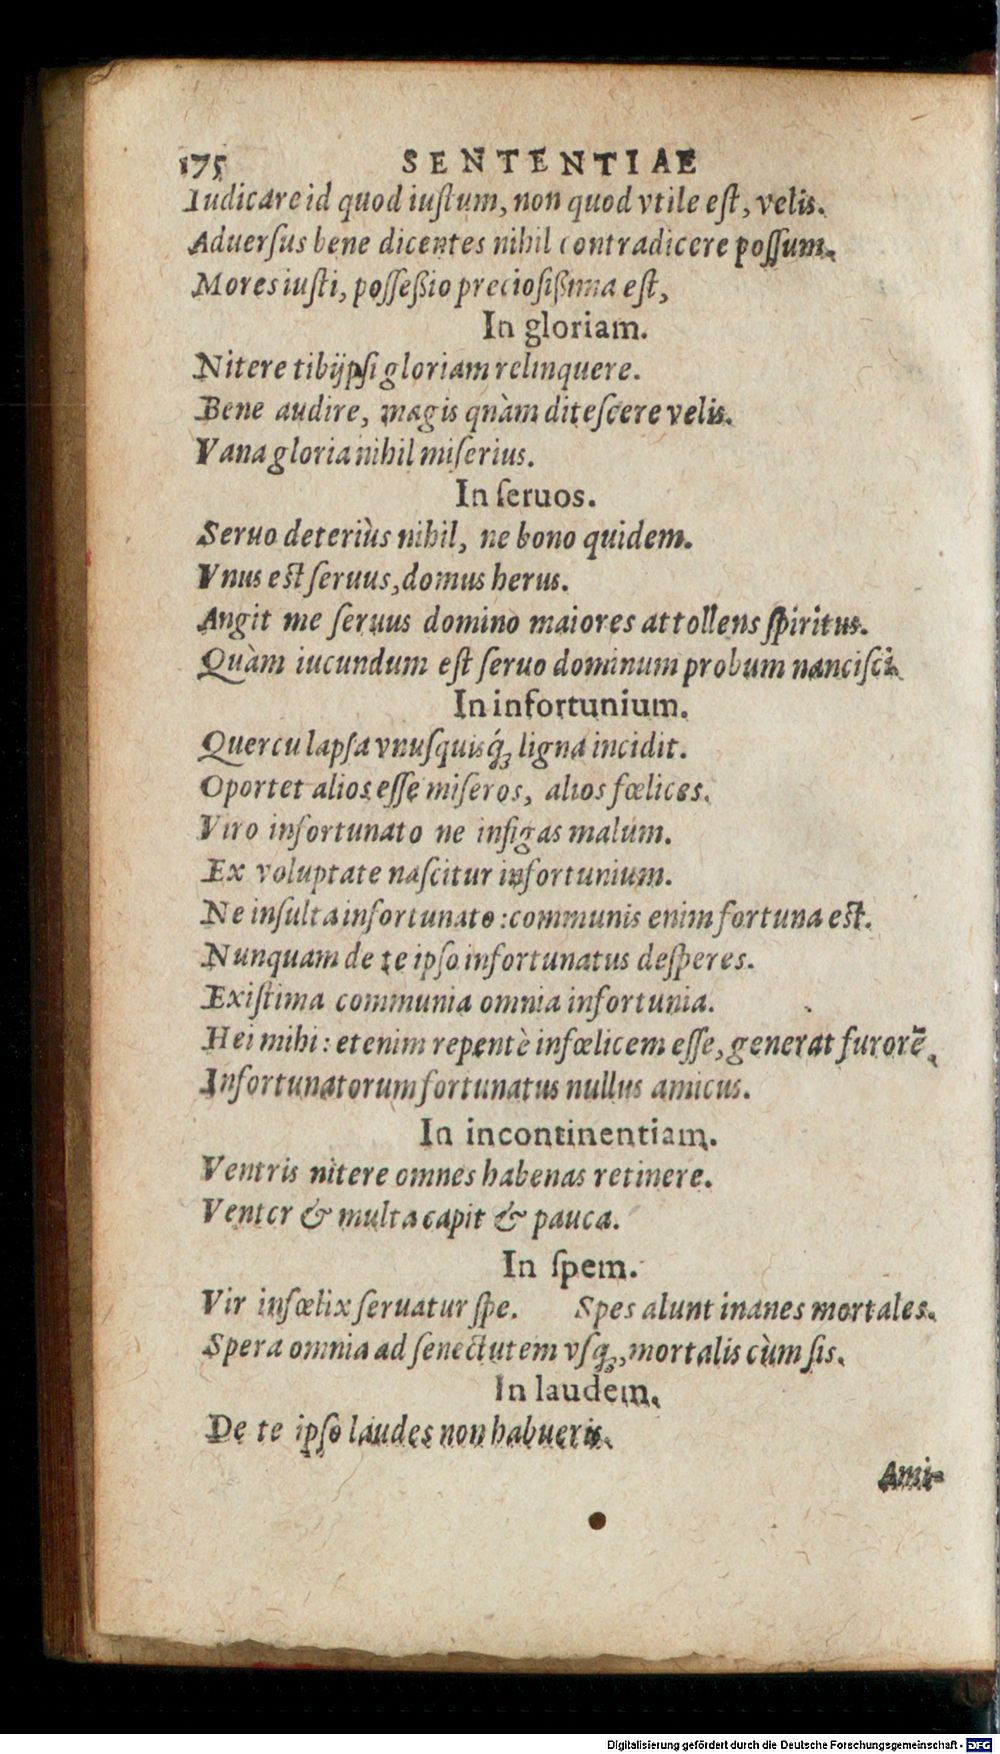 175 SENTENTIAE
Iudicare id quod iuſtum, non quod vtile eſt, velis.
Aduerſus bene dicentes nihil contradicere poſſum.
Mores iuſti, poſſeßio precioſißima eſt,
In gloriam.
Nitere tibijpſi gloriam relinquere.
Bene audire, magis quàm diteſcere velis.
Vana gloria nihil miſerius.
In ſeruos.
Seruo deteriùs nihil, ne bono quidem.
Vnus eſt ſeruus, domus herus.
Angit me ſeruus domino maiores attollens ſpiritus.
Quàm iucundum eſt ſeruo dominum probum nanciſci.
In infortunium.
Quercu lapſa vnuſquisq́; ligna incidit.
Oportet alios eſſe miſeros, alios fœlices.
Viro infortunato ne infigas malum.
Ex voluptate naſcitur infortunium.
Ne inſulta infortunato: communis enim fortuna eſt.
Nunquam de te ipſo infortunatus deſperes.
Exiſtima communia omnia infortunia.
Hei mihi: etenim repentè infœlicem eſſe, generat furorẽ.
Infortunatorum fortunatus nullus amicus.
In incontinentiam.
Ventris nitere omnes habenas retinere.
Venter & multa capit & pauca.
In ſpem.
Vir infœlix ſeruatur ſpe. Spes alunt inanes mortales.
Spera omnia ad ſenectutem vſq;, mortalis cùm ſis.
In laudem.
De te ipſo laudes non habueris.
Ami-
Digitalisierung gefördert durch die Deutsche Forschungsgemeinschaft - DFG